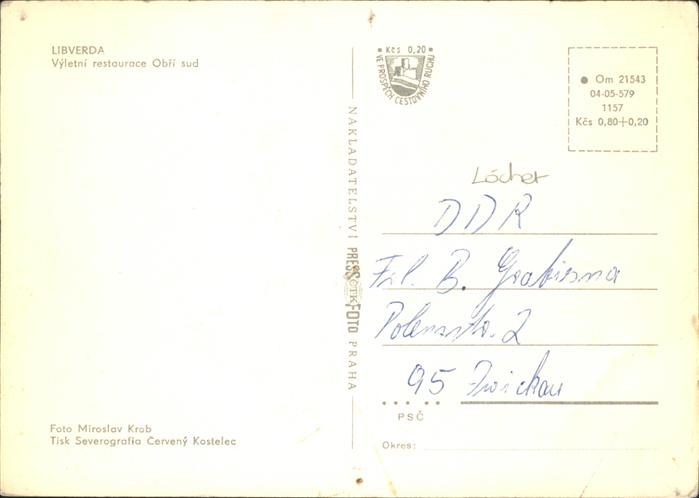 LIBVERDA
Výletní restaurace Obří sud
Kčs 0,20
VE PROSPĚCH CESTOVNÍHO RUCHU
Om 21543
04-05-579
1157
Kčs 0,80+0,20
NAKLADATELSTVÍ PRESSFOTO PRAHA
ČTK
Löcher
DDR
Frl. B. Grabiesna
Polenzstr. 2
95 Zwickau
PSČ
Okres:
Foto Miroslav Krob
Tisk Severografia Červený Kostelec